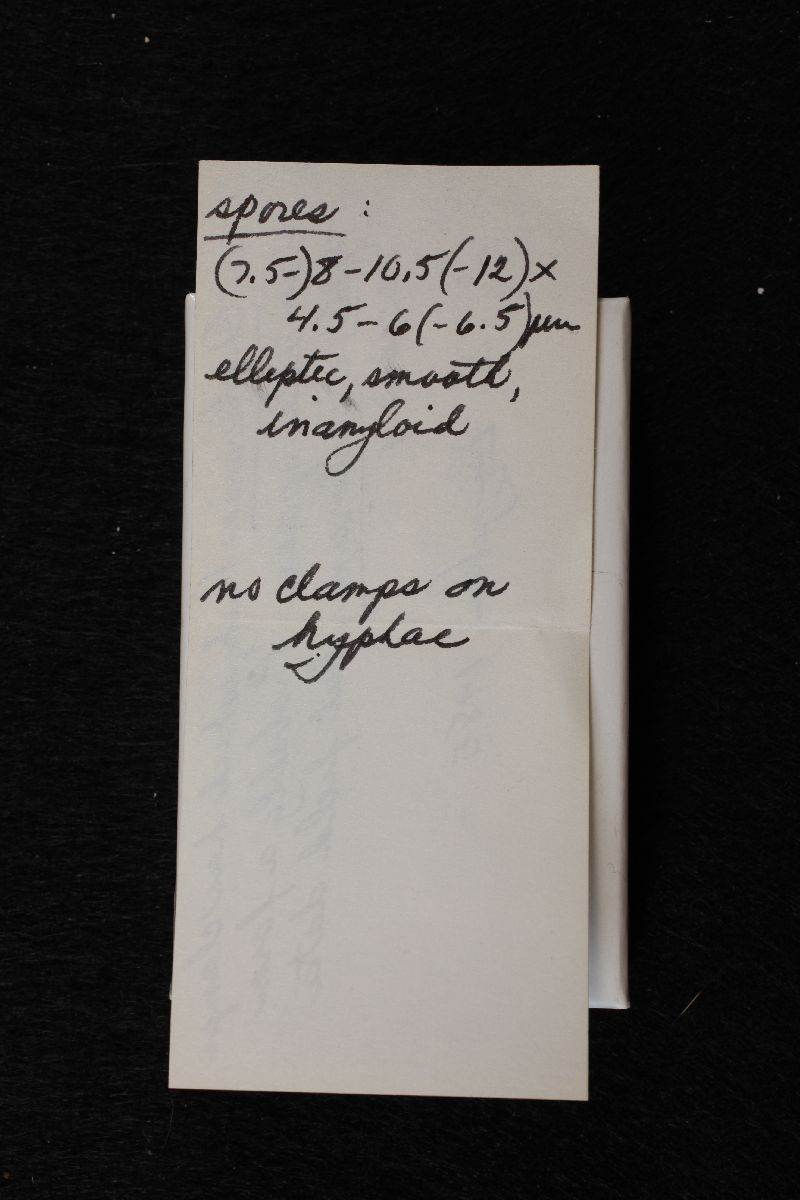 spores :
(7.5-)8-10.5(-12)x
4.5-6(-6.5)µm
elliptic, smooth,
inamyloid
no clamps on
hyphae